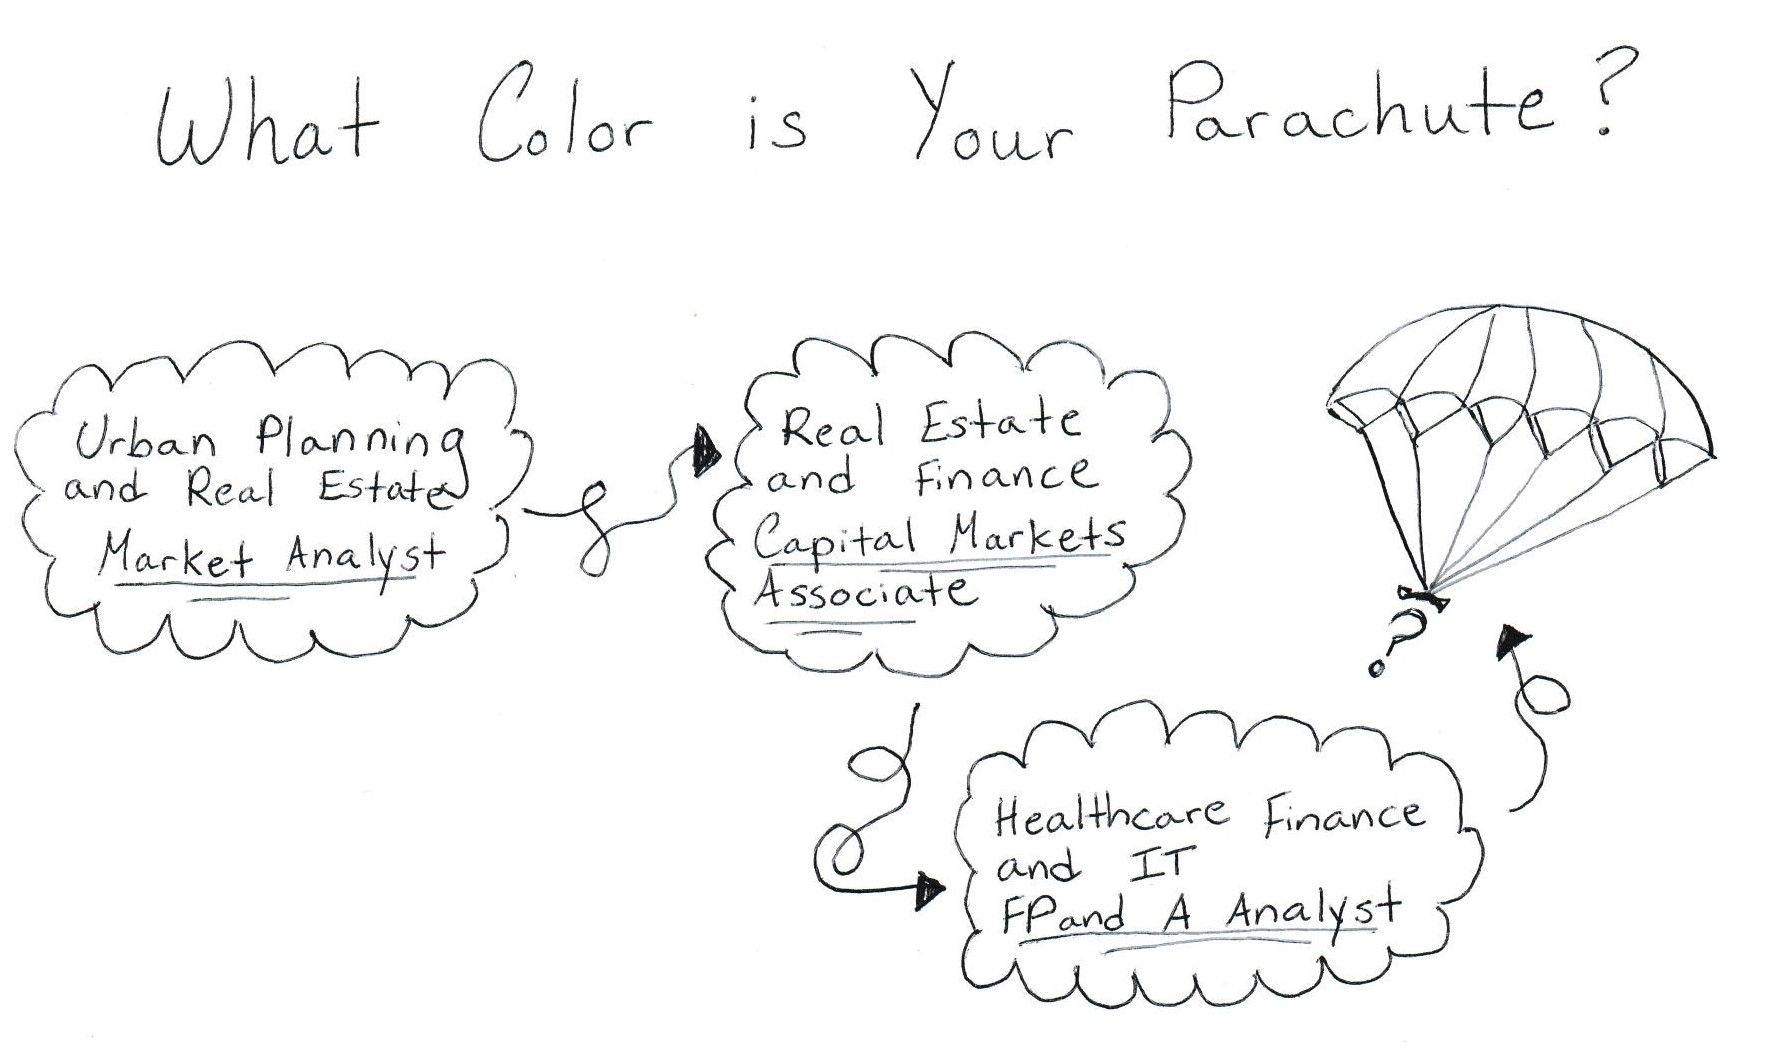 What Color is Your Parachute?
Urban Planning
and Real Estate
Market Analyst
Real Estate
and Finance
Capital Markets
Associate
Healthcare Finance
and IT
FPand A Analyst
?